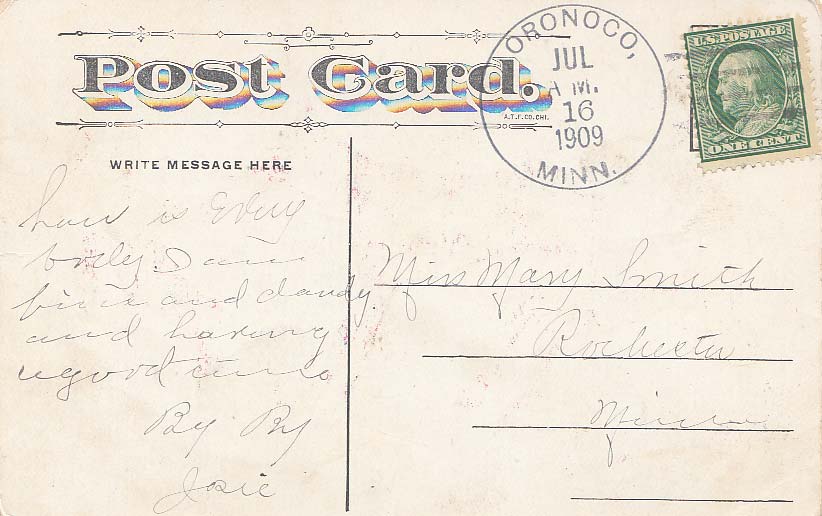 Post Card.
A.T.F.CO.CHI.
ORONOCO,
JUL
A M.
16
1909
MINN.
U.S. POSTAGE
ONE CENT
WRITE MESSAGE HERE
how is Every
body I am
fine and dandy.
and having
a good time
By By
Josie
Miss Mary Smith
Rochester